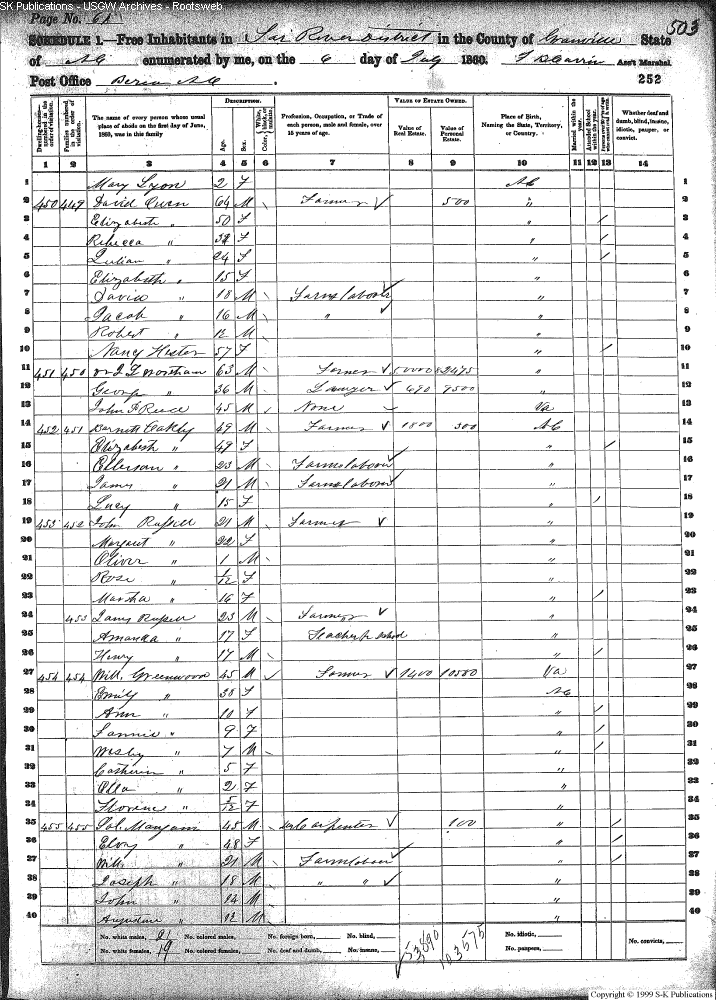 SK Publications - USGW Archives - Rootsweb
Page No. 61
503
SCHEDULE 1.—Free Inhabitants in Tar River District in the County of Granville State
of NC enumerated by me, on the 6 day of July 1860. Ass't Marshal
Post Office NC. 252
DESCRIPTION. VALUE OF ESTATE OWNED.
Dwelling-houses— numbered in the order of visitation.
Families numbered in the order of visitation.
The name of every person whose usual place of abode on the first day of June, 1860, was in this family
Age. Sex. Color, White, black, or mulatto.
Profession, Occupation, or Trade of each person, male and female, over 15 years of age.
Value of Real Estate. Value of Personal Estate.
Place of Birth, Naming the State, Territory, or Country.
Married within the year. Attended School within the year.
Whether deaf and dumb, blind, insane, idiotic, pauper, or convict.
1 2 3 4 5 6 7 8 9 10 11 12 13 14
1 Mary Lyon 2 F NC 1
2 450 449 David Owen 64 M Farmer 500 " 2
3 Elizabeth " 50 F " 3
4 Rebecca " F " 4
5 Julian " 24 F " 5
6 Elizabeth " 15 F " 6
7 David " 18 M Farm laborer " 7
8 Jacob " 16 M " " 8
9 Robert " 12 M " 9
10 Nancy Hester 57 F " 10
11 451 450 Worsham 63 M Farmer 50000 82495 " 11
12 George " 36 M Lawyer 490 9500 " 12
13 John F Reece 45 M None Va 13
14 452 451 Barnett Oakly 49 M Farmer 1800 300 NC 14
15 Elizabeth " 49 F " 15
16 Ellerson " 23 M Farm laborer " 16
17 James " 21 M Farm laborer " 17
18 Lucy " 15 F " 18
19 453 452 John Russell 21 M Farmer " 19
20 Margaret " 22 F " 20
21 Oliver " 1 M " 21
22 Rose " /12 F " 22
23 Martha " 16 F " 23
24 453 James Russell 23 M Farmer " 24
25 Amanda " 17 F Teacher school " 25
26 Henry " 17 M " 26
27 454 454 Will. Greenwood 45 M Farmer 1400 10580 Va 27
28 Emily " 38 F NC 28
29 Ann " 10 F " 29
30 Fannie " 9 F " 30
31 Wesly " 7 M " 31
32 Catherin " 5 F " 32
33 Ella " 2 F " 33
34 Florence " 5/12 F " 34
35 455 455 Sol. Mangam 45 M Carpenter 100 " 35
36 " 48 F " 36
37 Will. " 21 M Farm laborer " 37
38 Joseph " 18 M " " " 38
39 John " 14 M " 39
40 " 12 M " 40
No. white males, 21 No. colored males, No. foreign born, No. blind, 53890 103575 No. idiotic,
No. white females, 19 No. colored females, No. deaf and dumb, No. insane, No. paupers, No. convicts,
Copyright © 1999 S-K Publications